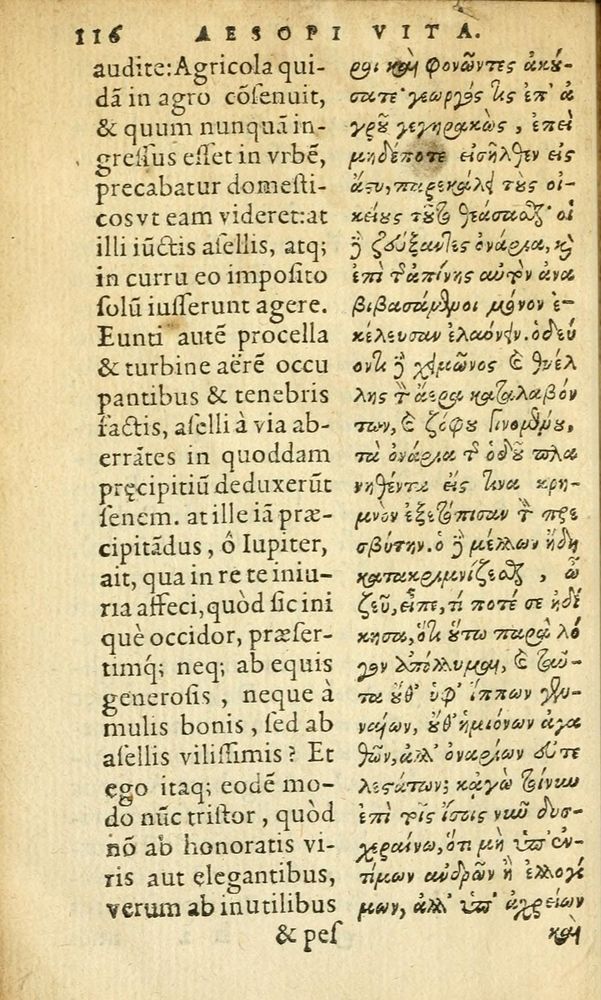 116 AESOPI VITA.
audite: Agricola qui-
dã in agro cõsenuit,
& quum nunquã in-
gressus esset in vrbẽ,
precabatur domesti-
cos vt eam videret: at
illi iũctis asellis, atq;
in curru eo imposito
solũ iusserunt agere.
Eunti autẽ procella
& turbine aërẽ occu
pantibus & tenebris
factis, aselli à via ab-
errãtes in quoddam
pręcipitiũ deduxerũt
senem. at ille iã præ-
cipitãdus, ô Iupiter,
ait, qua in re te iniu-
ria affeci, quòd sic ini
què occidor, præser-
timq́; neq; ab equis
generosis, neque à
mulis bonis, sed ab
asellis vilissimis? Et
ego itaq; eodẽ mo-
do nũc tristor, quòd
nõ ab honoratis vi-
ris aut elegantibus,
verum ab inutilibus
& pes
ροι καὶ φονῶντες ἀκού-
σατε· γεωργός τις ἐπ' ἀ
γροῦ γεγηρακὼς, ἐπεὶ
μηδέποτε εἰσῆλθεν εἰς
ἄστυ, παρεκάλει τοὺς οἰ-
κείους τοῦτο θεάσασθαι· οἱ
δὲ ζεύξαντες ὀνάρια, καὶ
ἐπὶ τῆς ἀπήνης αὐτὸν ἀνα
βιβασάμενοι μόνον ἐ-
κέλευσαν ἐλαύνειν. ὁδεύ
οντι δὲ χειμῶνος καὶ θυέλ
λης τὸν ἀέρα καταλαβόν
των, καὶ ζόφου γινομένου,
τὰ ὀνάρια τῆς ὁδοῦ πλα
νηθέντα εἰς τινα κρη-
μνὸν ἐξετόπισαν τὸν πρε
σβύτην. ὁ δὲ μέλλων ἤδη
κατακρημνίζεσθαι, ὦ
ζεῦ, εἶπε, τί ποτέ σε ἠδί
κησα, ὅτι οὕτω παρὰ λό
γον ἀπόλλυμαι, καὶ ταῦ-
τα οὔθ' ὑφ' ἵππων γεν-
ναίων, οὔθ' ἡμιόνων ἀγα
θῶν, ἀλλ' ὀναρίων εὐτε
λεστάτων; κἀγὼ τοίνυν
ἐπὶ τοῖς ἴσοις νῦν δυσ-
χεραίνω, ὅτι μὴ ὑπ' ἐν-
τίμων ἀνδρῶν ἢ ἐλλογί
μων, ἀλλ' ὑπ' ἀχρείων
καὶ